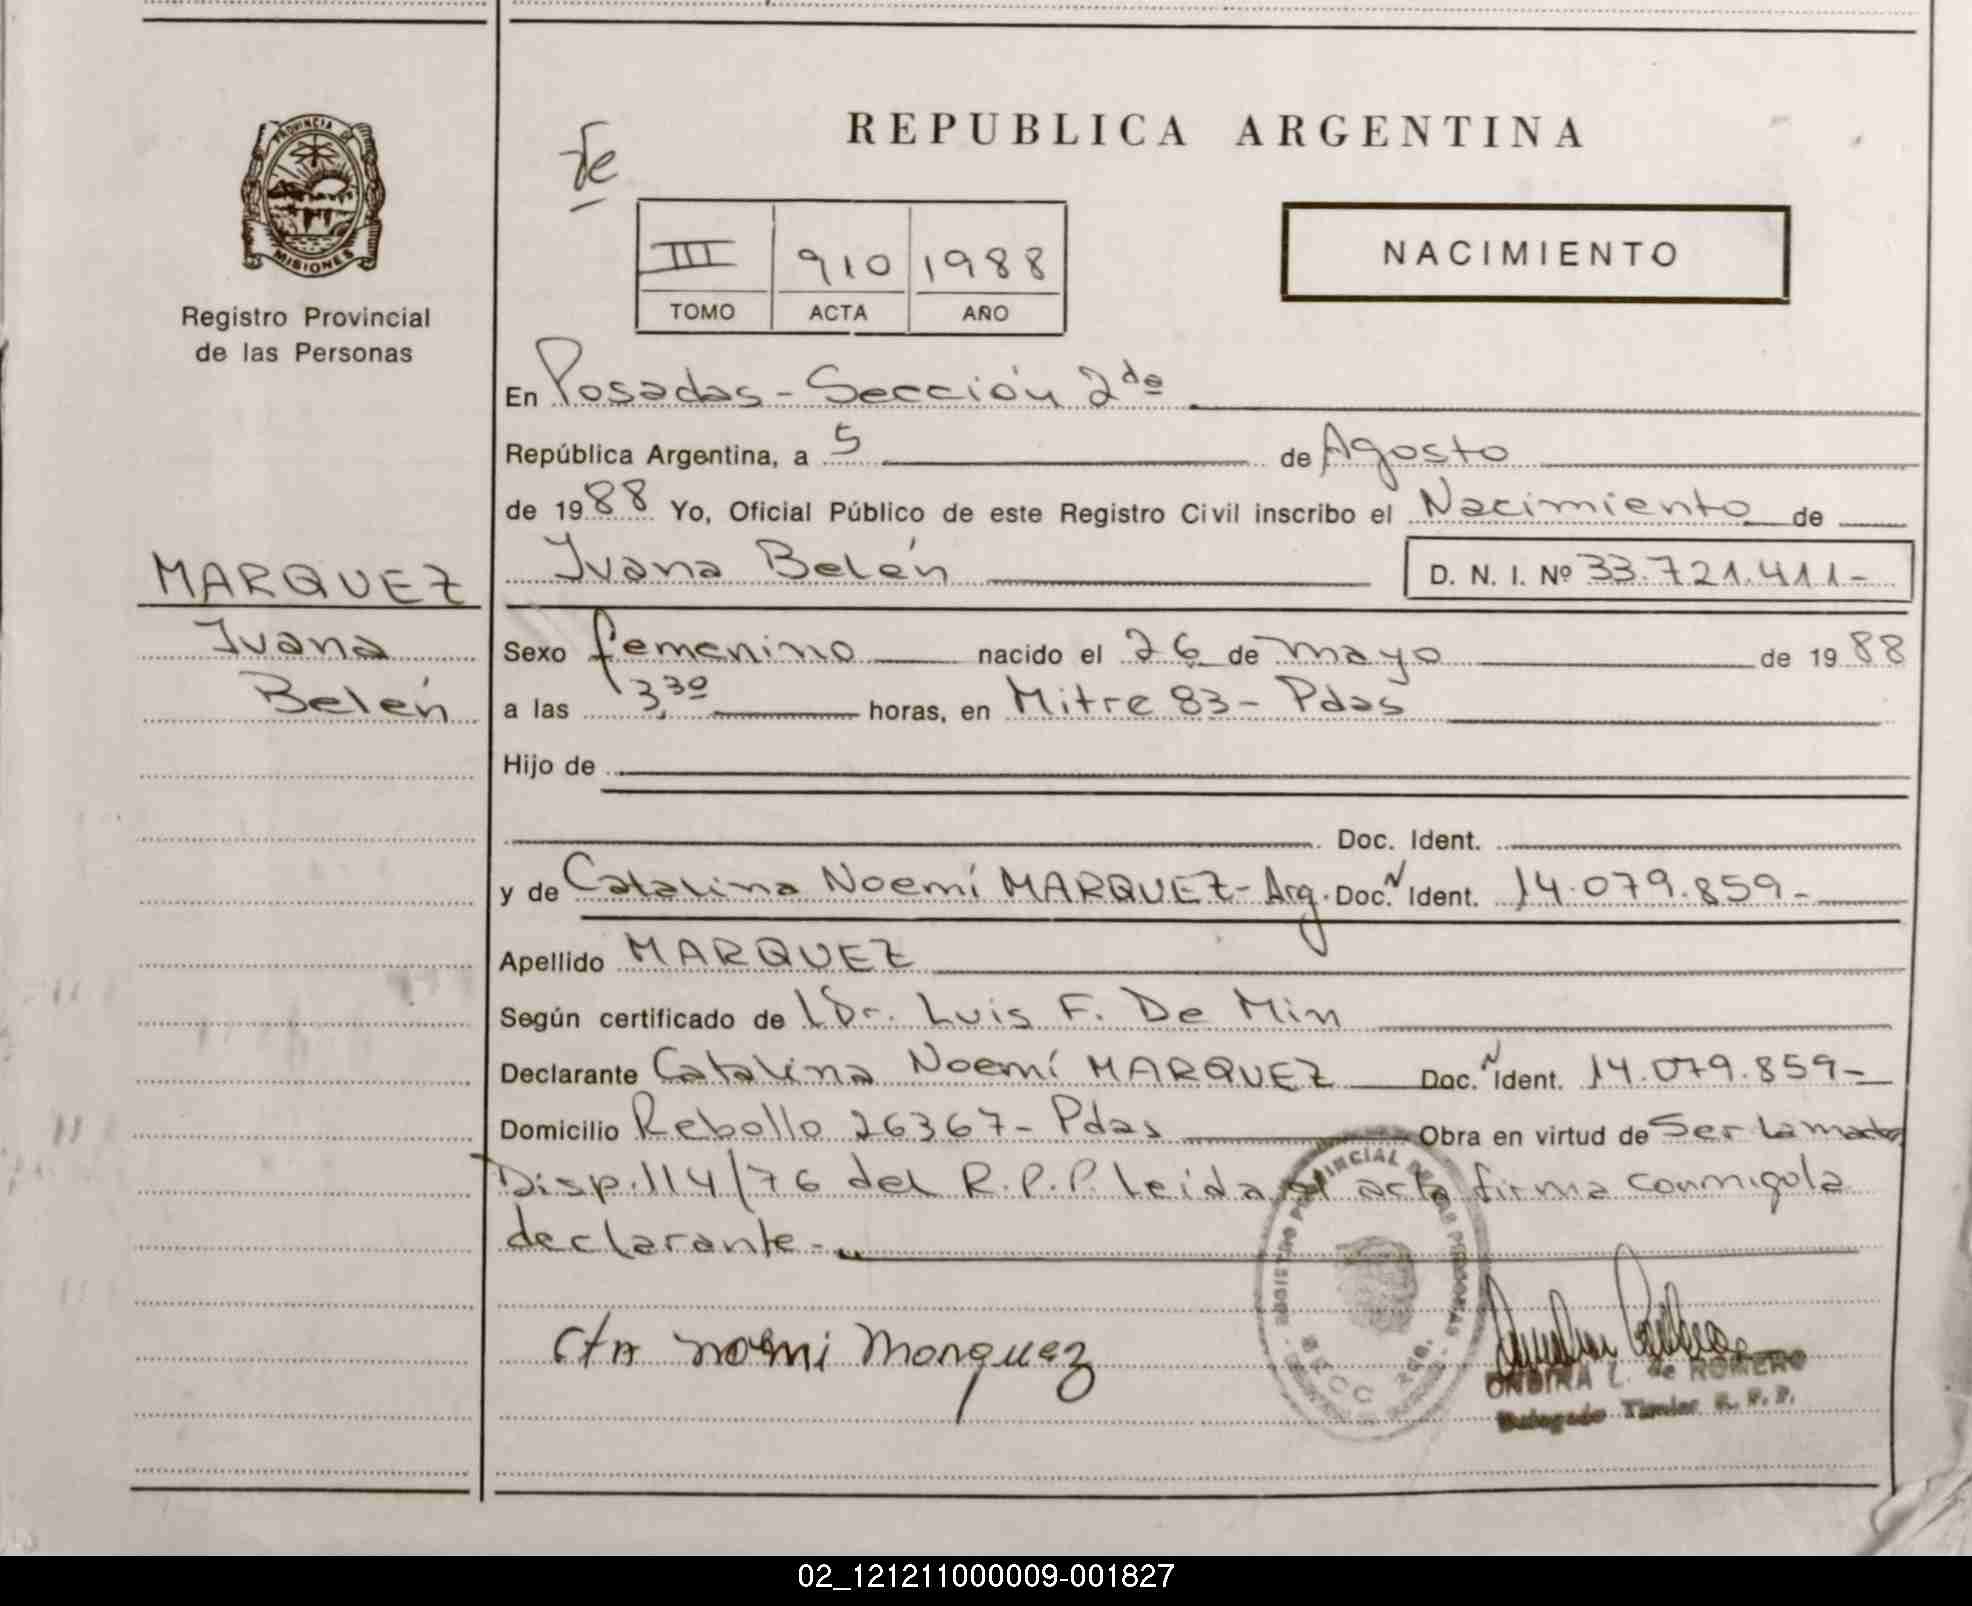 REPUBLICA ARGENTINA
PROVINCIA DE
MISIONES
Registro Provincial
de las Personas
III 910 1988
TOMO ACTA AÑO
NACIMIENTO
En Posadas - Sección 2da
República Argentina, a 5 de Agosto
de 1988 Yo, Oficial Público de este Registro Civil inscribo el Nacimiento de
Ivana Belén D. N. I. Nº 33.721.411-
MARQUEZ
Ivana
Belén
Sexo femenino nacido el 26 de mayo de 1988
a las 3,30 horas, en Mitre 83 - Pdas
Hijo de
Doc. Ident.
y de Catalina Noemí MARQUEZ - Arg. Doc. Ident. 14.079.859-
Apellido MARQUEZ
Según certificado de Dr. Luis F. De Min
Declarante Catalina Noemí MARQUEZ Doc. Ident. 14.079.859-
Domicilio Rebollo 26367 - Pdas Obra en virtud de Ser la madre
Disp. 114/76 del R.P.P. Leida el acta firma conmigo la
declarante-
REGISTRO PROVINCIAL DE LAS PERSONAS
SECC. 2da.
Cta noemi Marquez
ONDINA L. de ROMERO
Delegado Titular R. P. P.
02_121211000009-001827